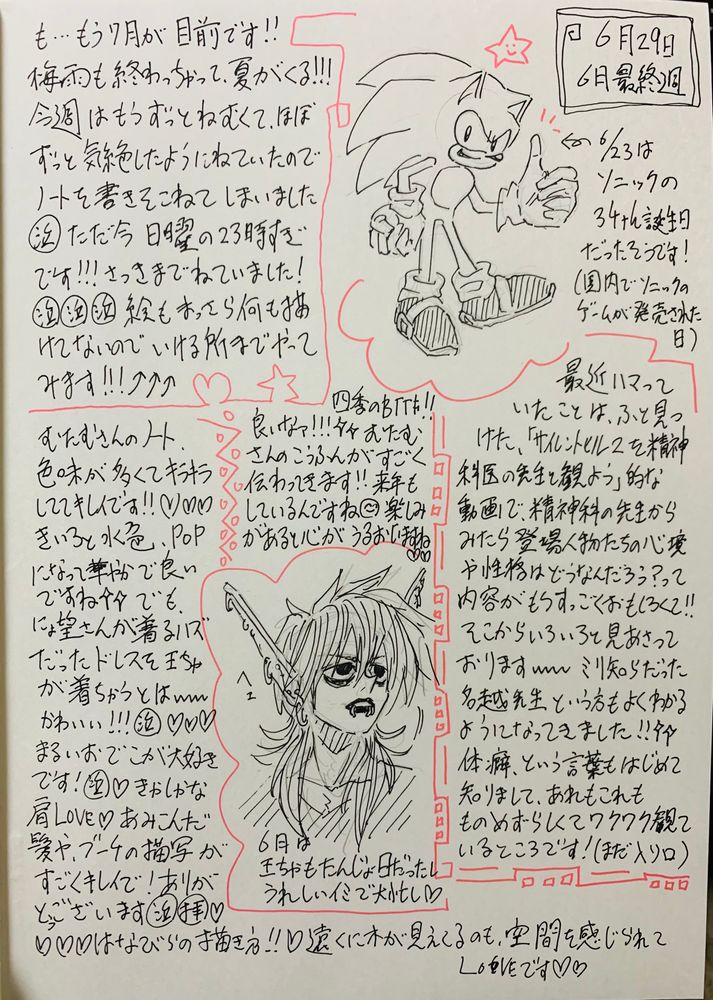 6月29日
6月最終週
も…もう7月が目前です!!
梅雨も終わっちゃって、夏がくる!!!
今週はもうずっとねむくて、ほぼ
ずっと気絶したようにねていたので
ノートを書きそこねてしまいました
㊋ただ今 日曜の23時すぎ
です!!! さっきまでねていました!
絵もまっさら何も描
けてないので いける所までやって
みます!!!↑↑↑
←6/23は
ソニックの
34th誕生日
だったそうです!
(国内でソニックの
ゲームが発売された
日)
むたむさんのノート、
色味が多くてキラキラ
しててキレイです!!♡♡♡
きいろと水色、POP
になって華やかで良い
ですね でも、
にょ望さんが着るハズ
だったドレスを王ちゃ
が着ちゃうとはwww
かわいい!!! ♡♡♡
まるいおでこが大好き
です! ♡ きゃしゃな
肩LOVE♡ あみこんだ
髪や、ブーケの描写が
すごくキレイで! ありが
とうございます ♡
♡♡♡はなびらの描き方!!♡遠くに木が見えてるのも、空間を感じられて
LOVEです♡♡
四季のBTTか!!
良いなァ!!! むたむ
さんのこうふんがすごく
伝わってきます!! 来年も
しているんですね 楽しみ
があると心がうるおいますね
♡♡
へェ
6月は
王ちゃもたんじょ日だったし
うれしいイミで大忙し♡
最近ハマって
いたことは、ふと見つ
けた、「サイレントヒル2を精神
科医の先生と観よう」的な
動画で、精神科の先生から
みたら登場人物たちの心境
や性格はどうなんだろう?って
内容がもうすっごくおもしろくて!!
そこからいろいろと見あさって
おりますwww ミリ知らだった
名越先生という方もよくわかる
ようになってきました!!
体癖、という言葉もはじめて
知りまして、あれもこれも
ものめずらしくてワクワク観て
いるところです!(まだ入り口)